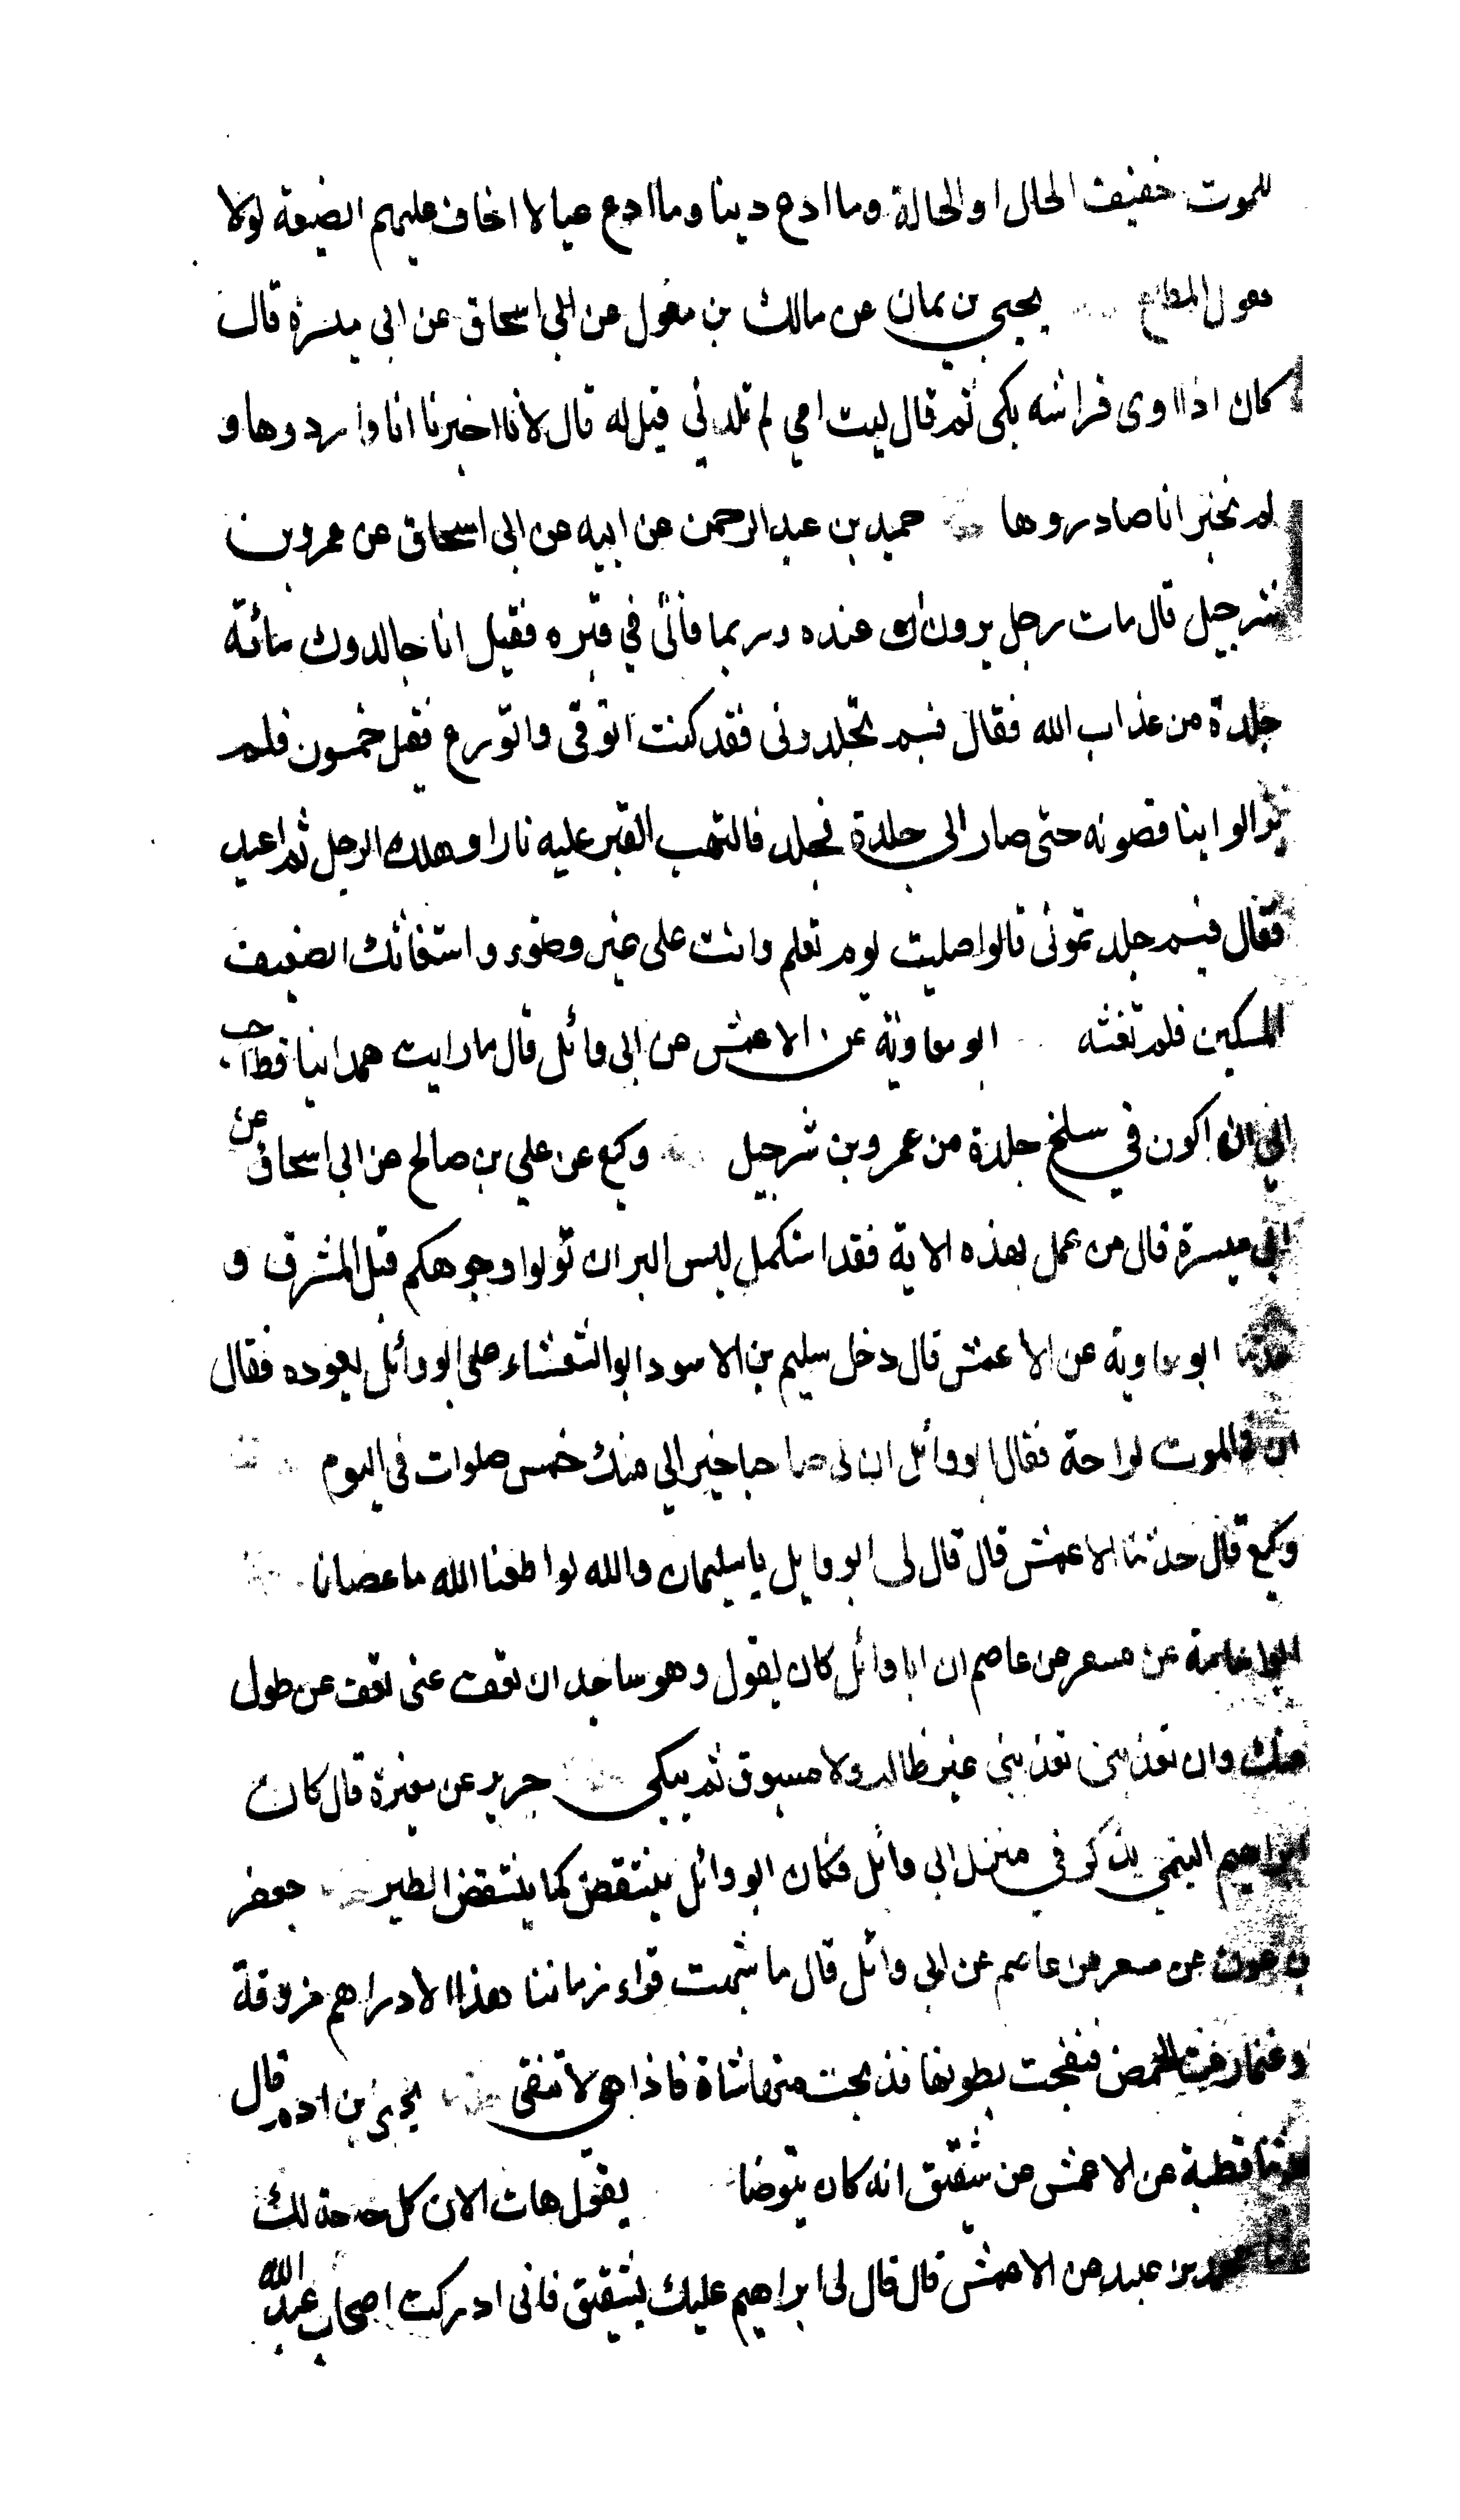 للموت خفيف الحال او الحالة وما ادع دينا وما ادع عيالا اخاف عليهم الضيعة لولا
هول المطلع يحيى بن يمان عن مالك بن مغول عن ابي اسحاق عن ابي ميسرة قال
كان اذا اوى فراشه بكى ثم قال ليت امي لم تلدني قيل له قال لانا اخبرنا انا واردوها و
لم نخبر انا صادروها حميد بن عبد الرحمن عن ابيه عن ابي اسحاق عن عمرو بن
شرحبيل قال مات رجل يرون ان عنده وربما فاتى في قبره فقيل انا جالدوك مائة
جلدة من عذاب الله فقال فيم تجلدونى فقد كنت اتوقى واتورع فقيل خمسون فلم
يزالوا يناقصونه حتى صار الى جلدة فجلد فالتهب القبر عليه نارا وهلك الرجل ثم اعيد
فقال فيم جلدتموني قالوا صليت يوم تعلم وانت على غير وضوء واستغاثك الضعيف
المسكين فلم تغثه ابو معاوية عن الاعمش عن ابى وائل قال ما رايت همدانيا قط احب
الي ان اكون في سلخ جلدة من عمرو بن شرحبيل وكيع عن علي بن صالح عن ابى اسحاق عن
ابي ميسرة قال من عمل بهذه الاية فقد استكمل ليس البر ان تولوا وجوهكم قبل المشرق و
ابو معاوية عن الاعمش قال دخل سليم بن الاسود ابو الشعشاء على ابو وائل يعوده فقال
ان فالموت لراحة فقال ابو وائل ان لى صاحبا خير الي منك خمس صلوات في اليوم
وكيع قال حدثنا الاعمش قال قال لى ابو وايل يا سليمان والله لو اطعنا الله ما عصانا
عن مسعر عن عاصم ان ابا وائل كان يقول وهو ساجد ان تعف عنى تعف عن طول
منك وان تعذبنى تعذبني غير ظالم ولا مسبوق ثم يبكى جرير عن مغيرة قال كان
ابراهيم التيمي يذكر في منزل ابى وائل فكان ابو وائل ينتقض كما ينتقض الطير جعفر
بن عون عن مسعر عن عاصم عن ابى وائل قال ما شبهت قراء زماننا هذا الا دراهم مزوقة
رعت الحمض فنفخت بطونها فذبحت منها شاة فاذا هى لا تنقى يحيى بن ادم قال
حدثنا قطبة عن الاعمش عن شقيق انه كان يتوضا يقول هات الان كل حاجة لك
محمد بن عبيد عن الاعمش قال قال لى ابراهيم عليك بشقيق فانى ادركت اصحاب عبد الله